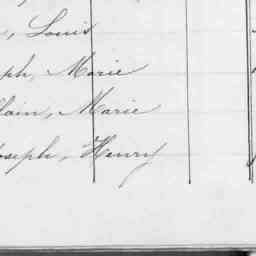 , Louis
ph, Marie
lain, Marie
oseph, Henry